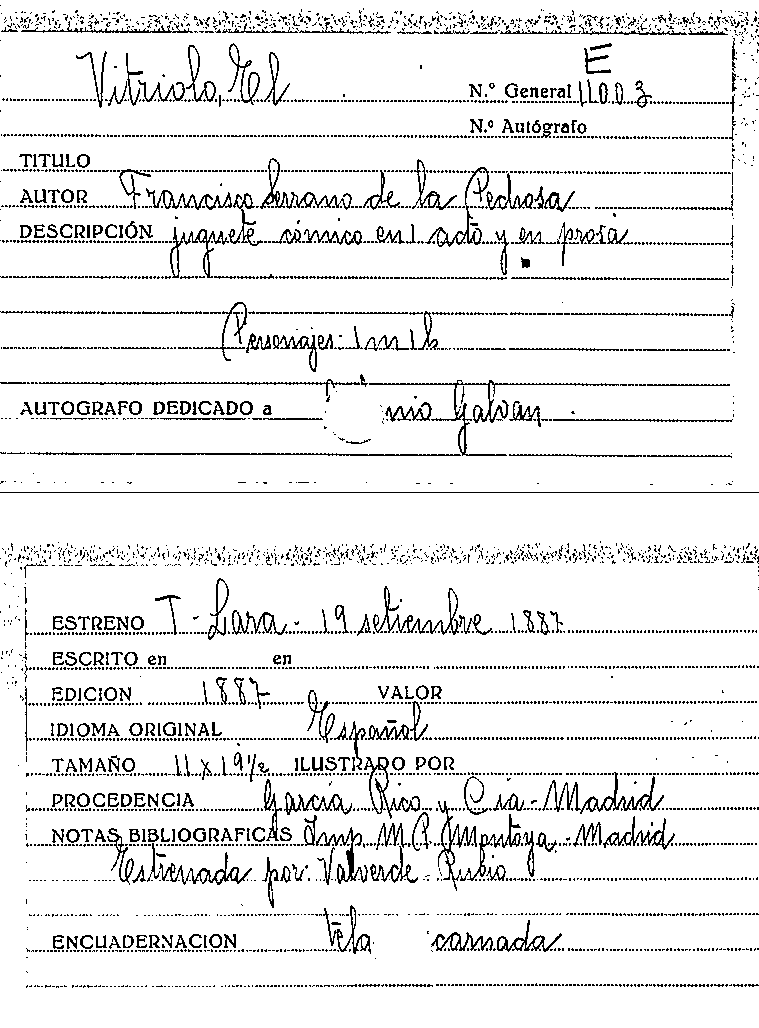 E
Vitriolo, El
N.º General 11003
N.º Autógrafo
TITULO
AUTOR Francisco Serrano de la Pedrosa
DESCRIPCIÓN juguete cómico en 1 acto y en prosa
Personajes: 1 m 1 h
AUTOGRAFO DEDICADO a nio Galvan
ESTRENO T - Lara - 19 setiembre 1887
ESCRITO en en
EDICION 1887 VALOR
IDIOMA ORIGINAL Español
TAMAÑO 11 x 19 1/2 ILUSTRADO POR
PROCEDENCIA García Rico y Cía - Madrid
NOTAS BIBLIOGRAFICAS Imp. M. P. Montoya - Madrid
Estrenada por: Valverde - Rubio
ENCUADERNACION tela carnada